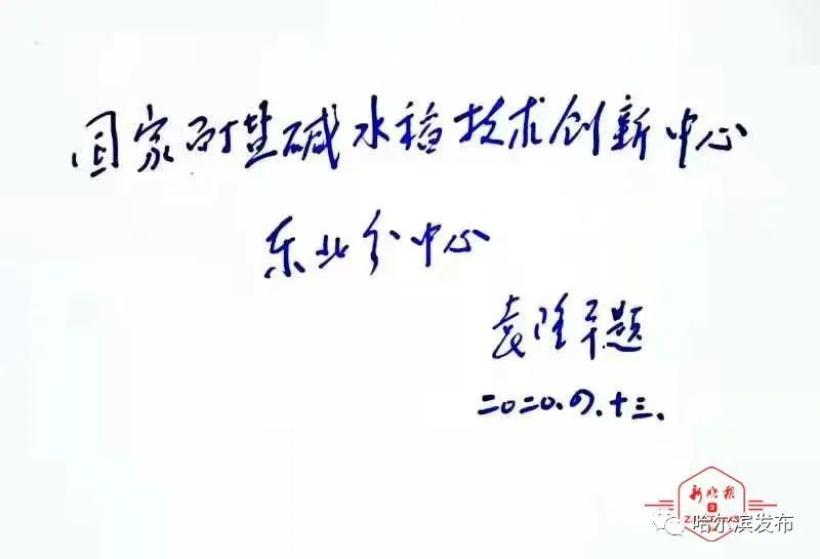 国家耐盐碱水稻技术创新中心
东北分中心
袁隆平题
二〇二〇.四.十三.
新晚报
哈尔滨发布